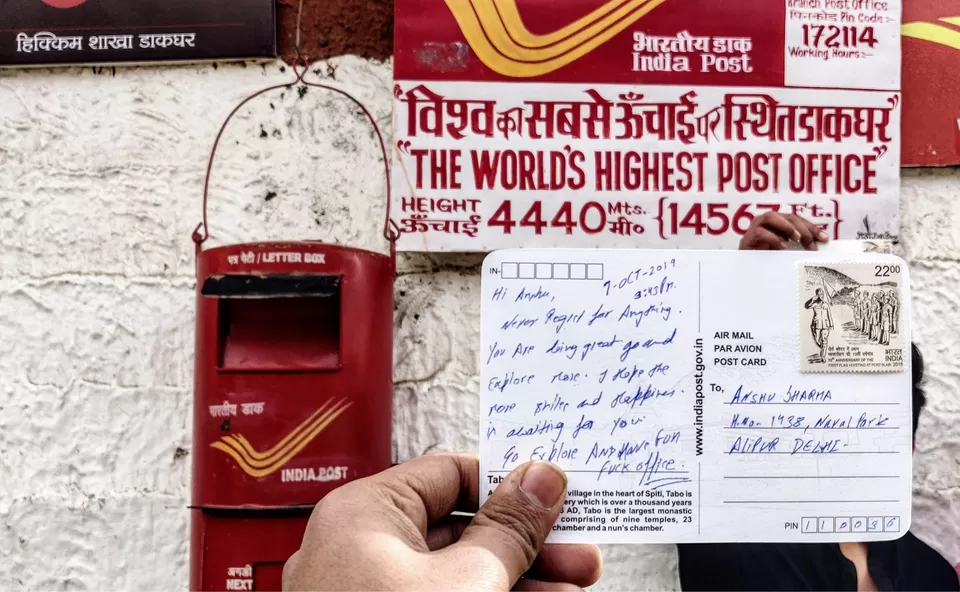 हिक्किम शाखा डाकघर
Branch Post Office
पिनकोड Pin Code :-
172114
Working Hours:-
भारतीय डाक
India Post
"विश्व का सबसे ऊँचाई पर स्थित डाकघर"
"THE WORLD'S HIGHEST POST OFFICE"
HEIGHT
ऊँचाई
4440 Mts.
मी०
{14567 Ft.
}
पत्र पेटी / LETTER BOX
भारतीय डाक
INDIA POST
अगली
NEXT
IN-
7-OCT-2019
3:45 Pm.
Hi Anshu,
Never Regret for Anything.
You Are doing great go and
Explore more. I Hope the
more smiles and Happiness
is awaiting for you.
Go Explore And Have Fun
Fuck office.
Tabo
village in the heart of Spiti, Tabo is
ery which is over a thousand years
AD, Tabo is the largest monastic
comprising of nine temples, 23
chamber and a nun's chamber.
www.indiapost.gov.in
2200
भारत
INDIA
2018
AIR MAIL
PAR AVION
POST CARD
To,
ANSHU SHARMA
H.No. 1438, Naval Park
ALIPUR DELHI-
PIN 110036